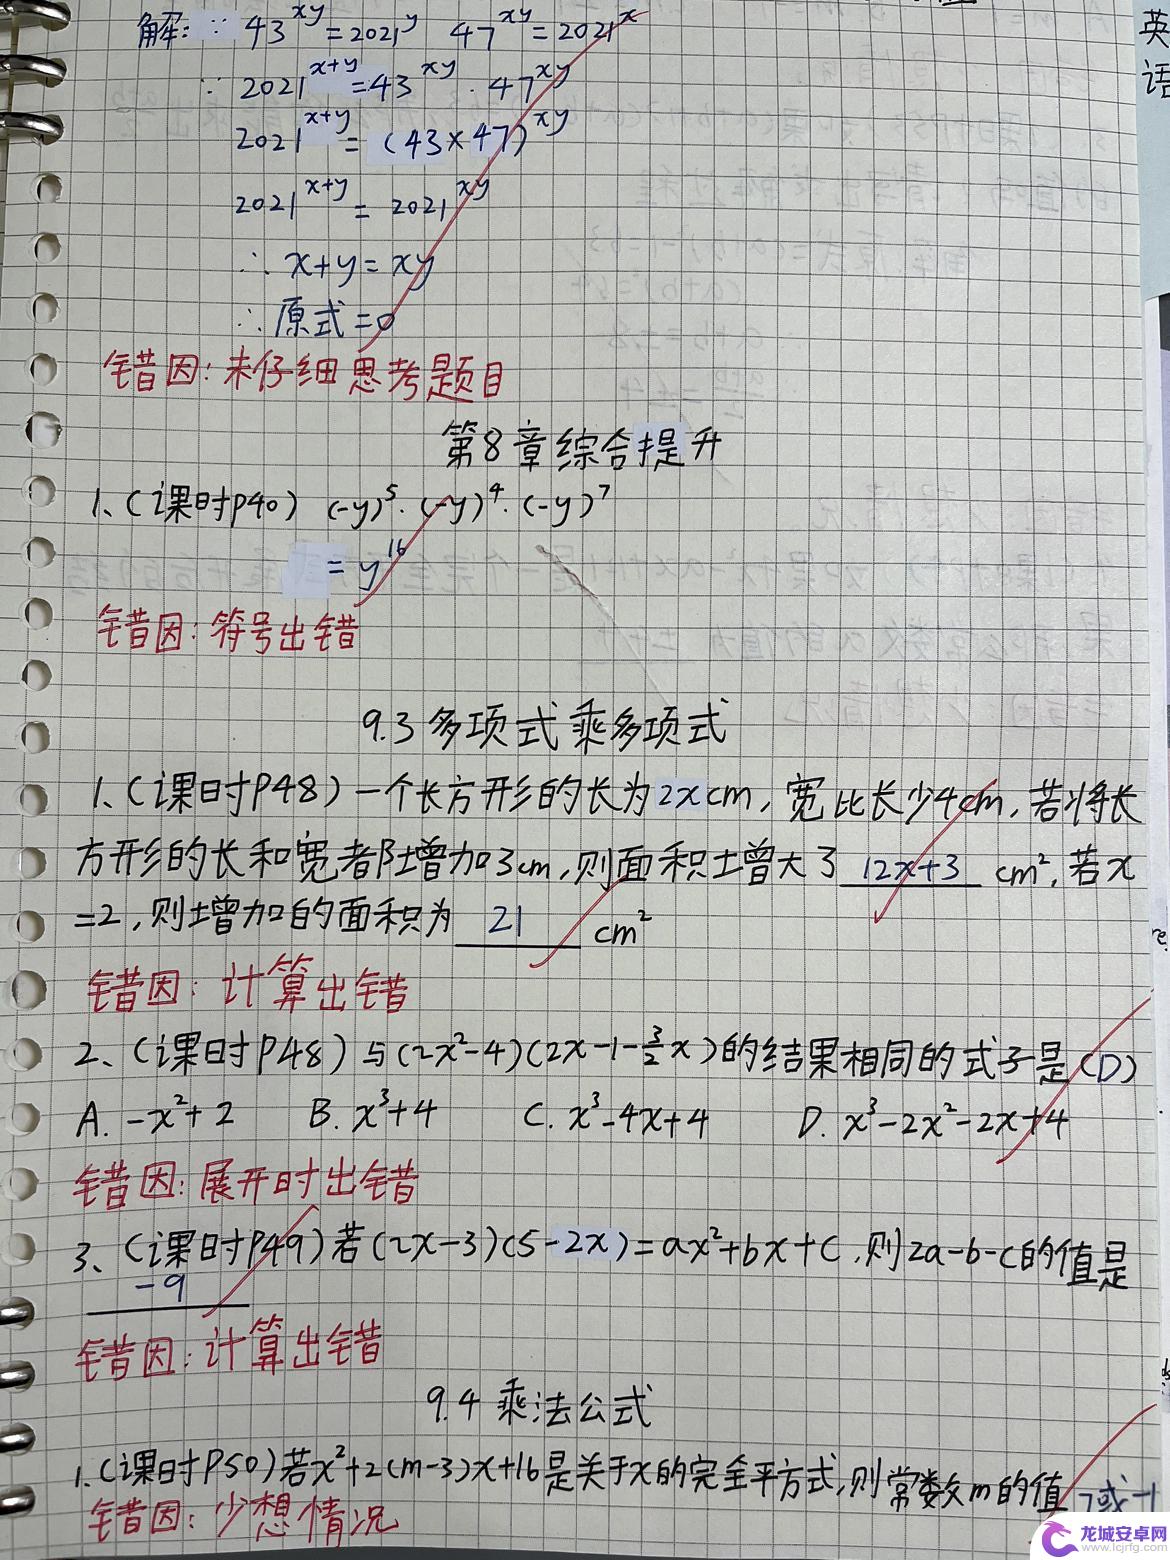 解:∵ 43^xy=2021^y 47^xy=2021^x
∵ 2021^x+y=43^xy·47^xy
2021^x+y=(43×47)^xy
2021^x+y=2021^xy
∴ x+y=xy
∴原式=0
错因:未仔细思考题目
第8章综合提升
1、(课时P40) (-y)^5·(-y)^4·(-y)^7
=y^16
错因:符号出错
9.3 多项式乘多项式
1、(课时P48)一个长方形的长为2xcm,宽比长少4cm,若将长
方形的长和宽都增加3cm,则面积增大了 12x+3 cm²,若x
=2,则增加的面积为 21 cm²
错因:计算出错
2、(课时P48)与(2x²-4)(2x-1-3/2x)的结果相同的式子是(D)
A. -x²+2 B. x³+4 C. x³-4x+4 D. x³-2x²-2x+4
错因:展开时出错
3、(课时P49)若(2x-3)(5-2x)=ax²+bx+c,则2a-b-c的值是
-9
错因:计算出错
9.4 乘法公式
1.(课时P50)若x²+2(m-3)x+16是关于x的完全平方式,则常数m的值 7或-1
错因:少想情况
英
语
龙城安卓网
www.lcjrfg.com